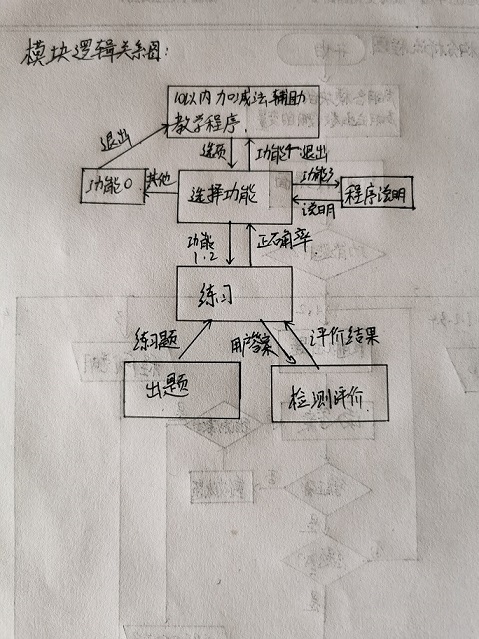 模块逻辑关系图:
10以内加减法辅助
教学程序.
退出
选项
功能4:退出
功能0
其他
选择功能
功能3
说明
程序说明
功能
1.2
正确率.
练习
练习题
用户答案
评价结果
出题
检测评价.